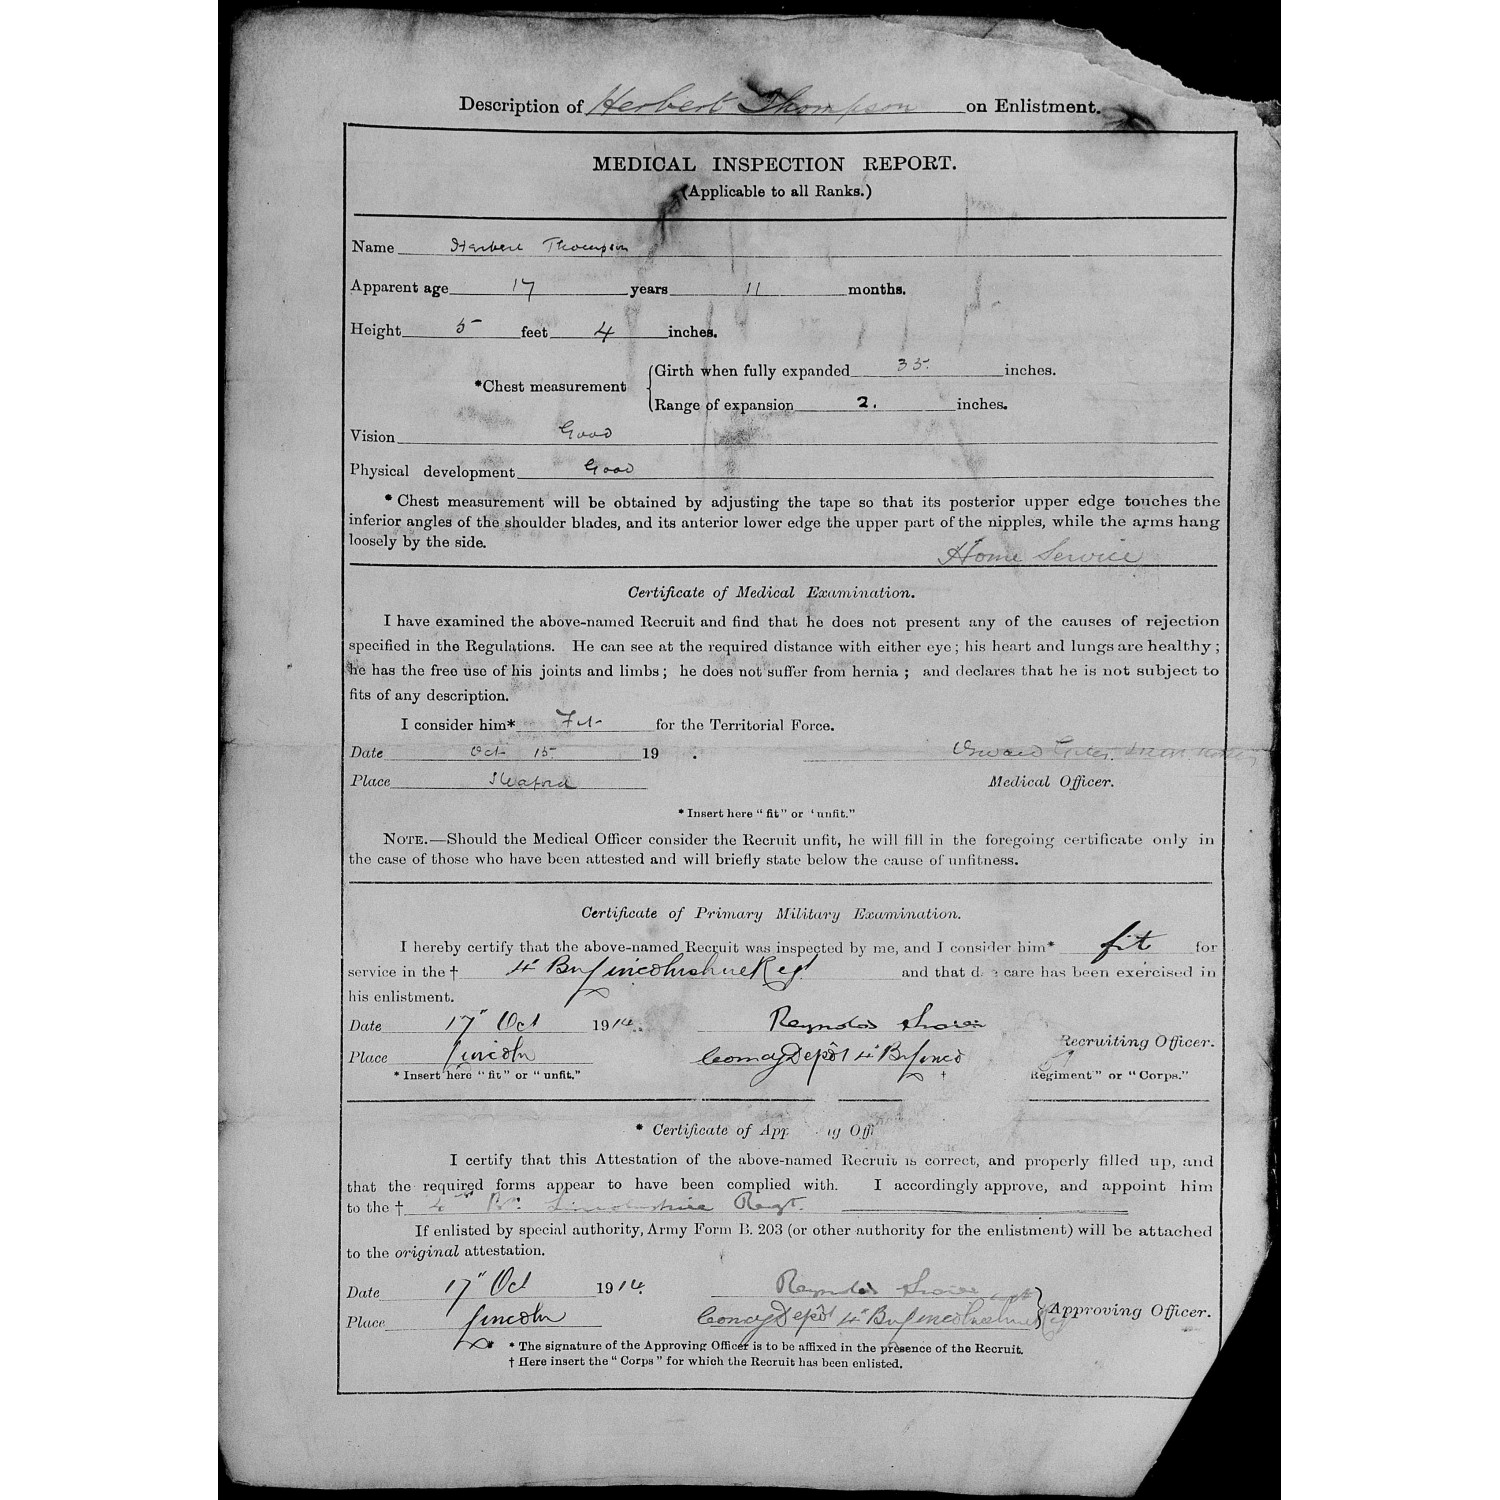 Description of Herbert Thompson on Enlistment.
MEDICAL INSPECTION REPORT.
(Applicable to all Ranks.)
Name Herbert Thompson
Apparent age 17 years 11 months.
Height 5 feet 4 inches.
*Chest measurement
Girth when fully expanded 35 inches.
Range of expansion 2. inches.
Vision Good
Physical development Good
* Chest measurement will be obtained by adjusting the tape so that its posterior upper edge touches the
inferior angles of the shoulder blades, and its anterior lower edge the upper part of the nipples, while the arms hang
loosely by the side.
Home Service
Certificate of Medical Examination.
I have examined the above-named Recruit and find that he does not present any of the causes of rejection
specified in the Regulations. He can see at the required distance with either eye; his heart and lungs are healthy;
he has the free use of his joints and limbs; he does not suffer from hernia; and declares that he is not subject to
fits of any description.
I consider him* Fit for the Territorial Force.
Date Oct 15 19 .
Place Sleaford
Medical Officer.
* Insert here "fit" or "unfit."
NOTE.—Should the Medical Officer consider the Recruit unfit, he will fill in the foregoing certificate only in
the case of those who have been attested and will briefly state below the cause of unfitness.
Certificate of Primary Military Examination.
I hereby certify that the above-named Recruit was inspected by me, and I consider him* fit for
service in the † 4th Bn Lincolnshire Regt and that d e care has been exercised in
his enlistment.
Date 17" Oct 1914.
Reynolds
Recruiting Officer.
Place Lincoln
Depôt 4th Bn Linco
* Insert here "fit" or "unfit."
† Regiment" or "Corps."
* Certificate of App ng Offi
I certify that this Attestation of the above-named Recruit is correct, and properly filled up, and
that the required forms appear to have been complied with. I accordingly approve, and appoint him
to the † 4th Bn. Lincolnshire Regt.
If enlisted by special authority, Army Form B. 203 (or other authority for the enlistment) will be attached
to the original attestation.
Date 17" Oct 1914.
Reynolds
Approving Officer.
Place Lincoln
Depôt 4th Bn Lincolnshire Reg
* The signature of the Approving Officer is to be affixed in the presence of the Recruit.
† Here insert the "Corps" for which the Recruit has been enlisted.